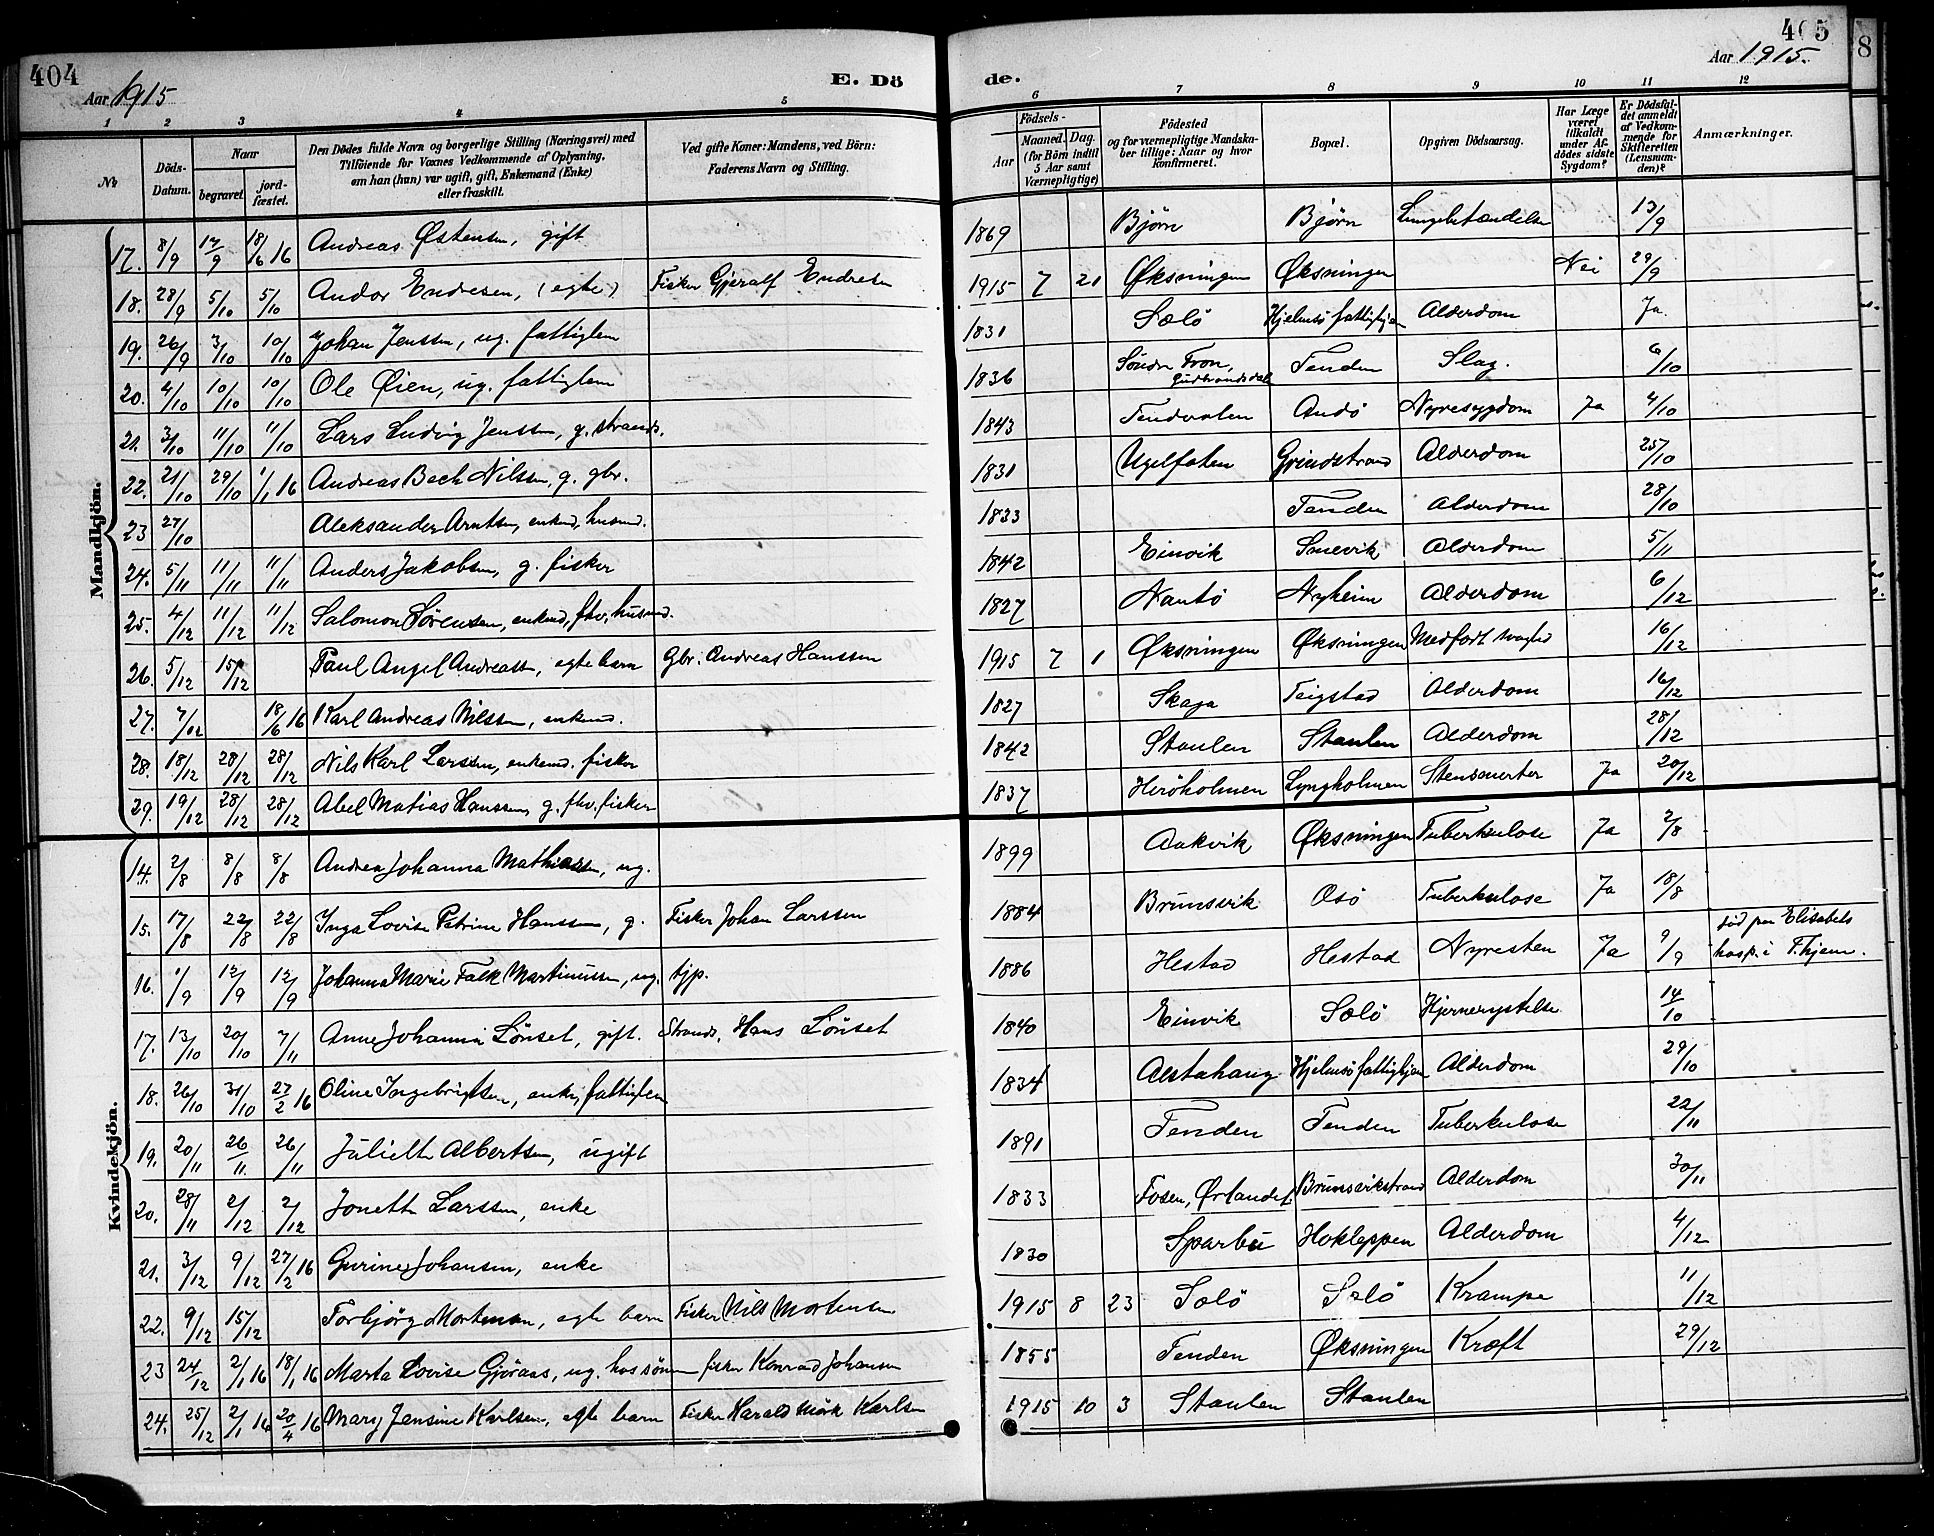 404
Aar 1915
E. Dö
de.
Aar 1915.
405
8
1 2 3 4 5 6 7 8 9 10 11 12
№
Döds-Datum.
Naar
begravet.
jord-fæstet.
Den Dödes fulde Navn og borgerlige Stilling (Næringsvei) med
Tilföiende for Voxnes Vedkommende af Oplysning,
om han (hun) var ugift, gift, Enkemand (Enke)
eller fraskilt.
Ved gifte Koner: Mandens, ved Börn:
Faderens Navn og Stilling.
Födsels-
Aar
Maaned. Dag.
(for Börn indtil
5 Aar samt
Værnepligtige)
Födested
og for værnepligtige Mandska-
ber tillige: Naar og hvor
konfirmeret.
Bopæl.
Opgiven Dödsaarsag.
Har Læge
været
tilkaldt
under Af-
dödes sidste
Sygdom?
Er Dödsfal-
det anmeldt
af Vedkom-
mende for
Skifteretten
(Lensman-
den)?
Anmærkninger.
Mandkjön.
17. 8/9 17/9 18/6 16 Andreas Østensen, gift 1869 Bjørn Bjørn Lungebetændelse 13/9
18. 28/9 5/10 5/10 Andor Endresen, (egte) Fisker Gjeralf Endresen 1915 7 21 Øksningen Øksningen Nei 29/9
19. 26/9 3/10 10/10 Johan Jenssen, ug. fattiglem 1831 Sælö Hjelmsö fattighjem Alderdom Ja.
20. 4/10 10/10 10/10 Ole Öien, ug. fattiglem 1836 Söndre Fron, Gudbrandsdal Tenden Slag. 6/10
21. 3/10 11/10 11/10 Lars Ludvig Jenssen, g. strands. 1843 Tendvalen Andö Nyresygdom Ja 4/10
22. 21/10 29/10 1/1 16 Andreas Bech Nilssen, g. gbr. 1831 Ugelfaten Grindstrand Alderdom 25/10
23 27/10 Aleksander Arntsen, enkmd, husmd. 1833 Tenden Alderdom 28/10
24. 5/11 11/11 11/11 Anders Jakobsen, g. fisker 1842 Einvik Snevik Alderdom 5/11
25. 4/12 11/12 11/12 Salomon Sørensen, enkmd, fhv. husmd. 1827 Nautö Nyheim Alderdom 6/12
26. 5/12 15/12 Paul Angel Andreassen, egte barn Gbr. Andreas Hanssen 1915 7 1 Øksningen Øksningen Medfødt svaghed 16/12
27. 7/12 18/6 16 Karl Andreas Nilssen, enkmd. 1827 Skaga Teigstad Alderdom 16/12
28. 18/12 28/12 28/12 Nils Karl Larssen, enkemd. fisker 1842 Staulen Staulen Alderdom 28/12
29. 19/12 28/12 28/12 Abel Matias Hanssen, g. fhv. fisker 1837 Heröholmen Lyngholmen Stensmerter Ja 20/12
Kvindekjön.
14. 2/8 8/8 8/8 Andrea Johanna Mathiassen, ug. 1899 Aakvik Øksningen Tuberkulose Ja 2/8
15. 17/8 22/8 22/8 Inga Lovise Petrine Hanssen, g. Fisker Johan Larssen 1884 Brunsvik Osö Tuberkulose Ja 18/8
16. 1/9 12/9 12/9 Johanna Marie Falk Martinussen, ug. tjp. 1886 Hestad Hestad Nyresten Ja 9/9 död paa Elisabets hosp. i T.hjem.
17. 13/10 20/10 7/11 Anne Johanna Lönset, gift. Strands. Hans Lönset 1840 Einvik Sælö Hjernerystelse 14/10
18. 26/10 31/10 27/2 16 Oline Ingebrigtsen, enke, fattiglem 1834 Alstahaug Hjelmsö fattighjem Alderdom 29/10
19. 20/11 26/11 26/11 Juliette Albertsen, ugift 1891 Tenden Tenden Tuberkulose 22/11
20. 28/11 2/12 2/12 Jonette Larssen, enke 1833 Fosen, Ørlandet Brunsvikstrand Alderdom 30/11
21. 3/12 9/12 27/2 16 Gurine Johansen, enke 1830 Sparbu Hokleppen Alderdom 4/12
22. 9/12 15/12 Torbjörg Mortensen, egte barn Fisker Nils Mortensen 1915 8 23 Solö Solö Krampe 11/12
23 24/12 2/1 16 18/1 16 Marta Lovise Gjöraas, ug. hos sönnen fisker Konrad Johansen 1855 Tenden Øksningen Kræft 29/12
24. 25/12 2/1 16 20/4 16 Mary Jensine Karlsen, egte barn Fisker Harald Mörk Karlsen 1915 10 3 Staulen Staulen